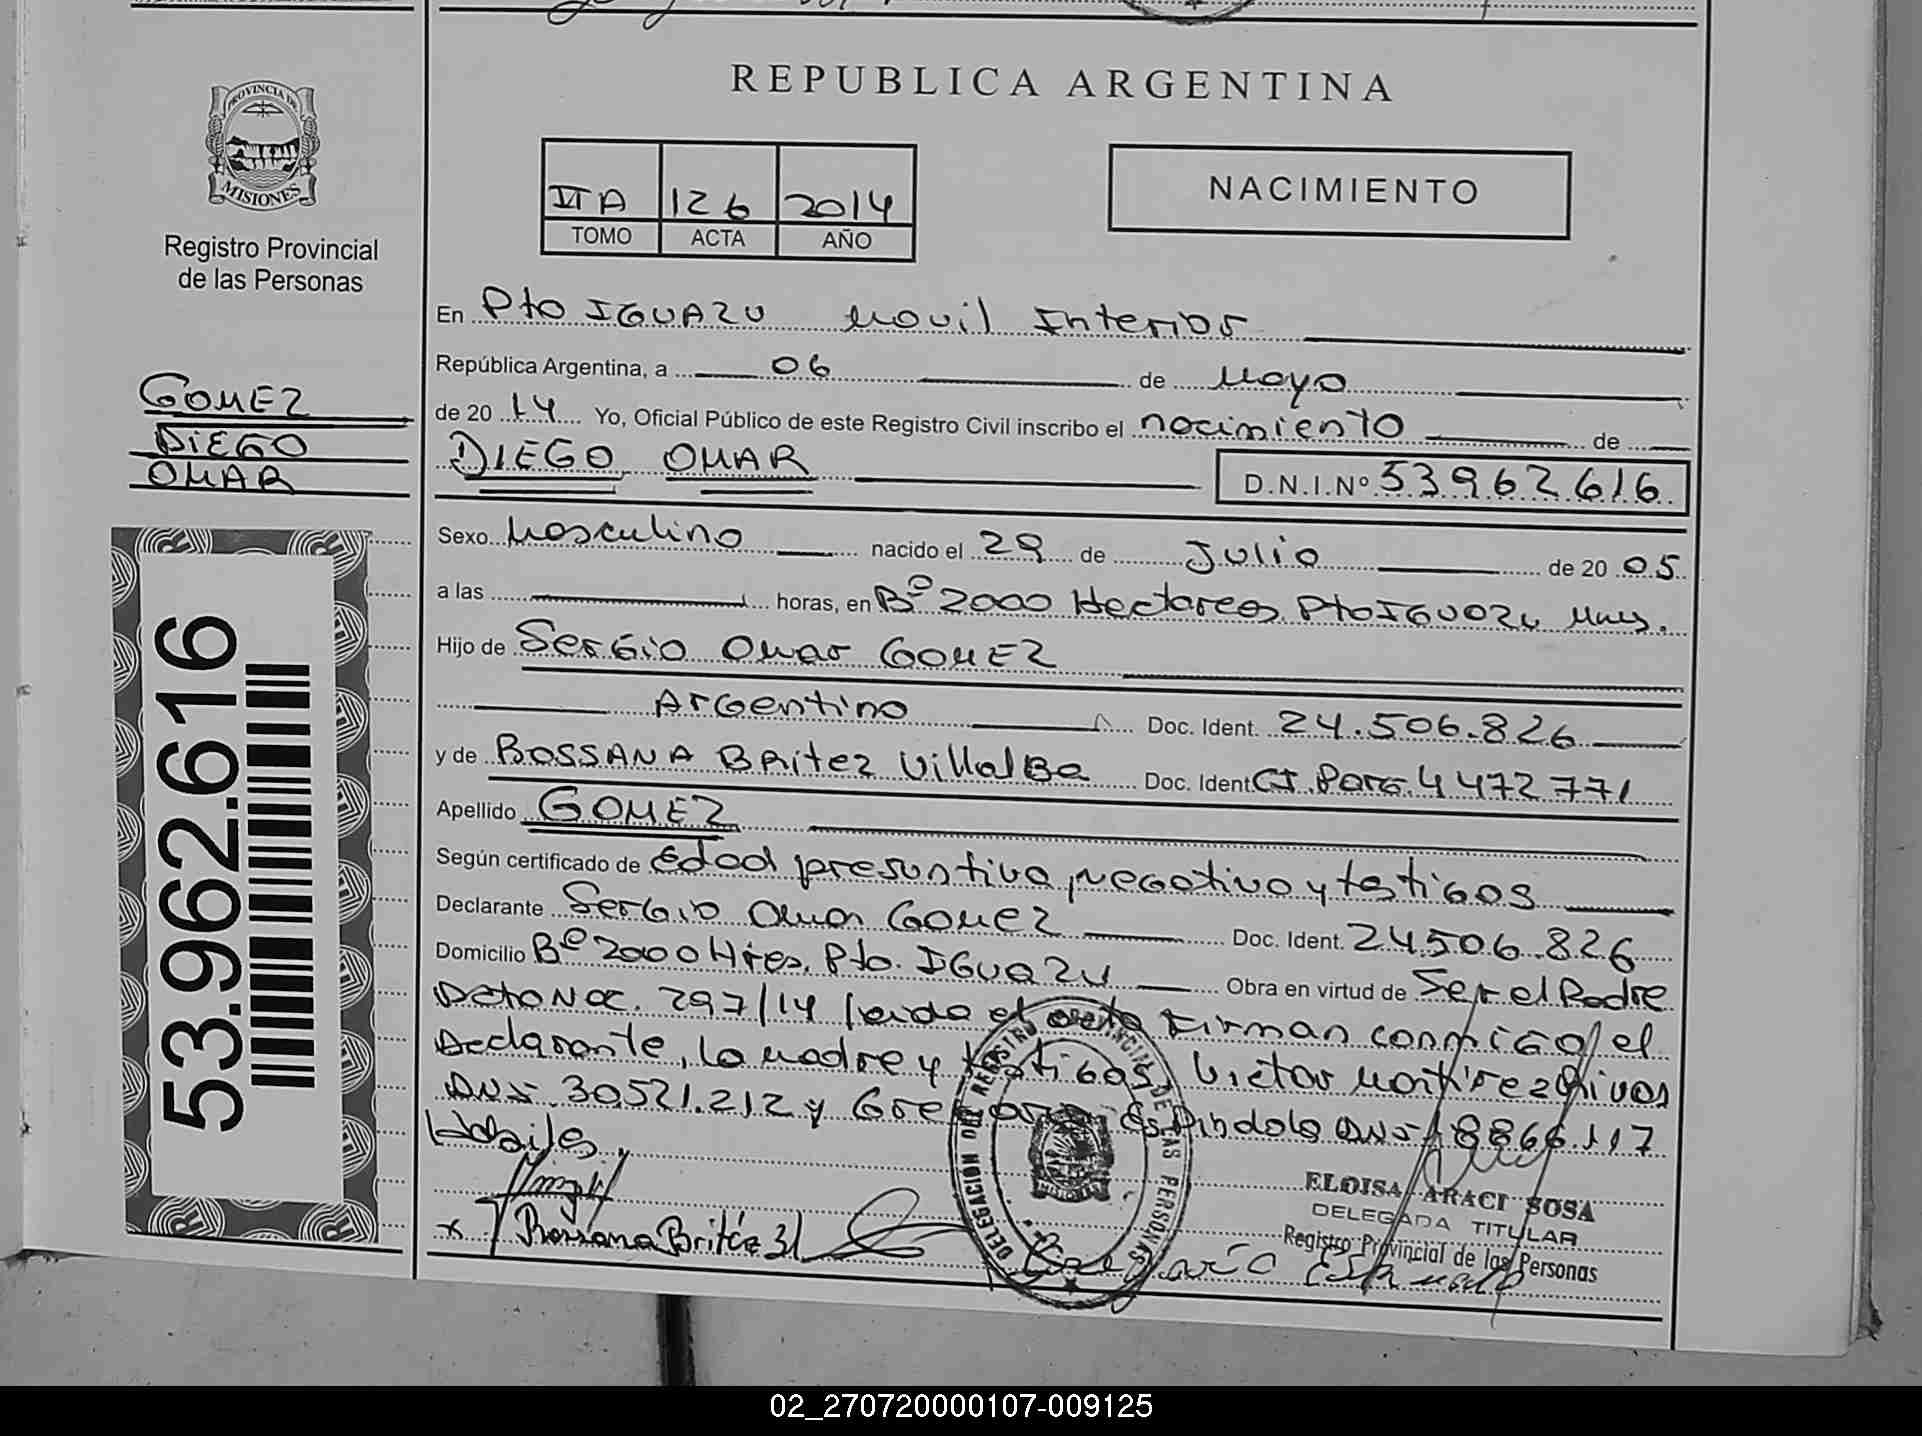 REPUBLICA ARGENTINA
PROVINCIA DE
MISIONES
Registro Provincial
de las Personas
126 2014
TOMO ACTA AÑO
NACIMIENTO
GOMEZ
DIEGO
OMAR
53.962.616
En Pto IGUAZU Movil Interior
República Argentina, a 06 de Mayo
de 20 14 Yo, Oficial Público de este Registro Civil inscribo el nacimiento de
DIEGO OMAR D.N.I.Nº 53962616
Sexo Masculino nacido el 29 de Julio de 20 05
a las horas, en Bº 2000 Hectareas Pto IGUAZU Mnes.
Hijo de Sergio Omar GOMEZ
Argentino Doc. Ident. 24.506.826
y de ROSSANA BRITEZ VillalBa Doc. Ident CI. Parg. 4472771
Apellido GOMEZ
Según certificado de Edad presuntiva, negativo y testigos
Declarante Sergio Omar Gomez Doc. Ident. 24506.826
Domicilio Bº 2000 Htes, Pto. IGUAZU Obra en virtud de Ser el Padre
Dcto Nac. 297/14 leido el acta Firman conmigo el
Declarante, la madre y testigos Victor Martirez
DNI 30521.212 y Gregorio Espindola DNI 18866.117
Habiles.
ELOISA ARACI SOSA
DELEGADA TITULAR
Registro Provincial de las Personas
DELEGACION DEL REGISTRO PROVINCIAL DE LAS PERSONAS
MISIONES
x Rossana Britéz
02_270720000107-009125